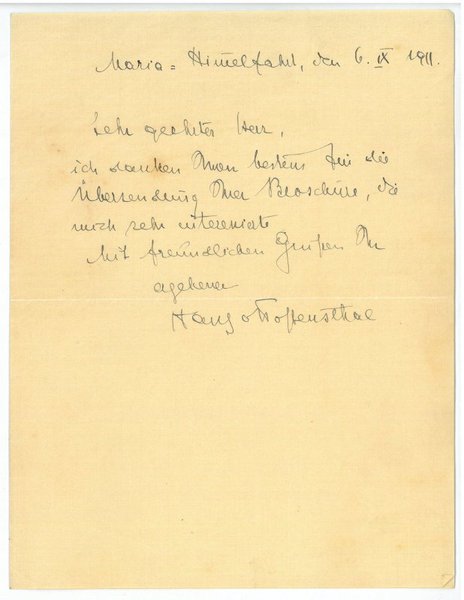 Maria = Himmelfahrt, den 6. IX 1911.
Sehr geehrter Herr,
ich danke Ihnen bestens für die
Übersendung Ihrer Broschüre, die
mich sehr interessirte
Mit freundlichen Grüßen Ihr
ergebener